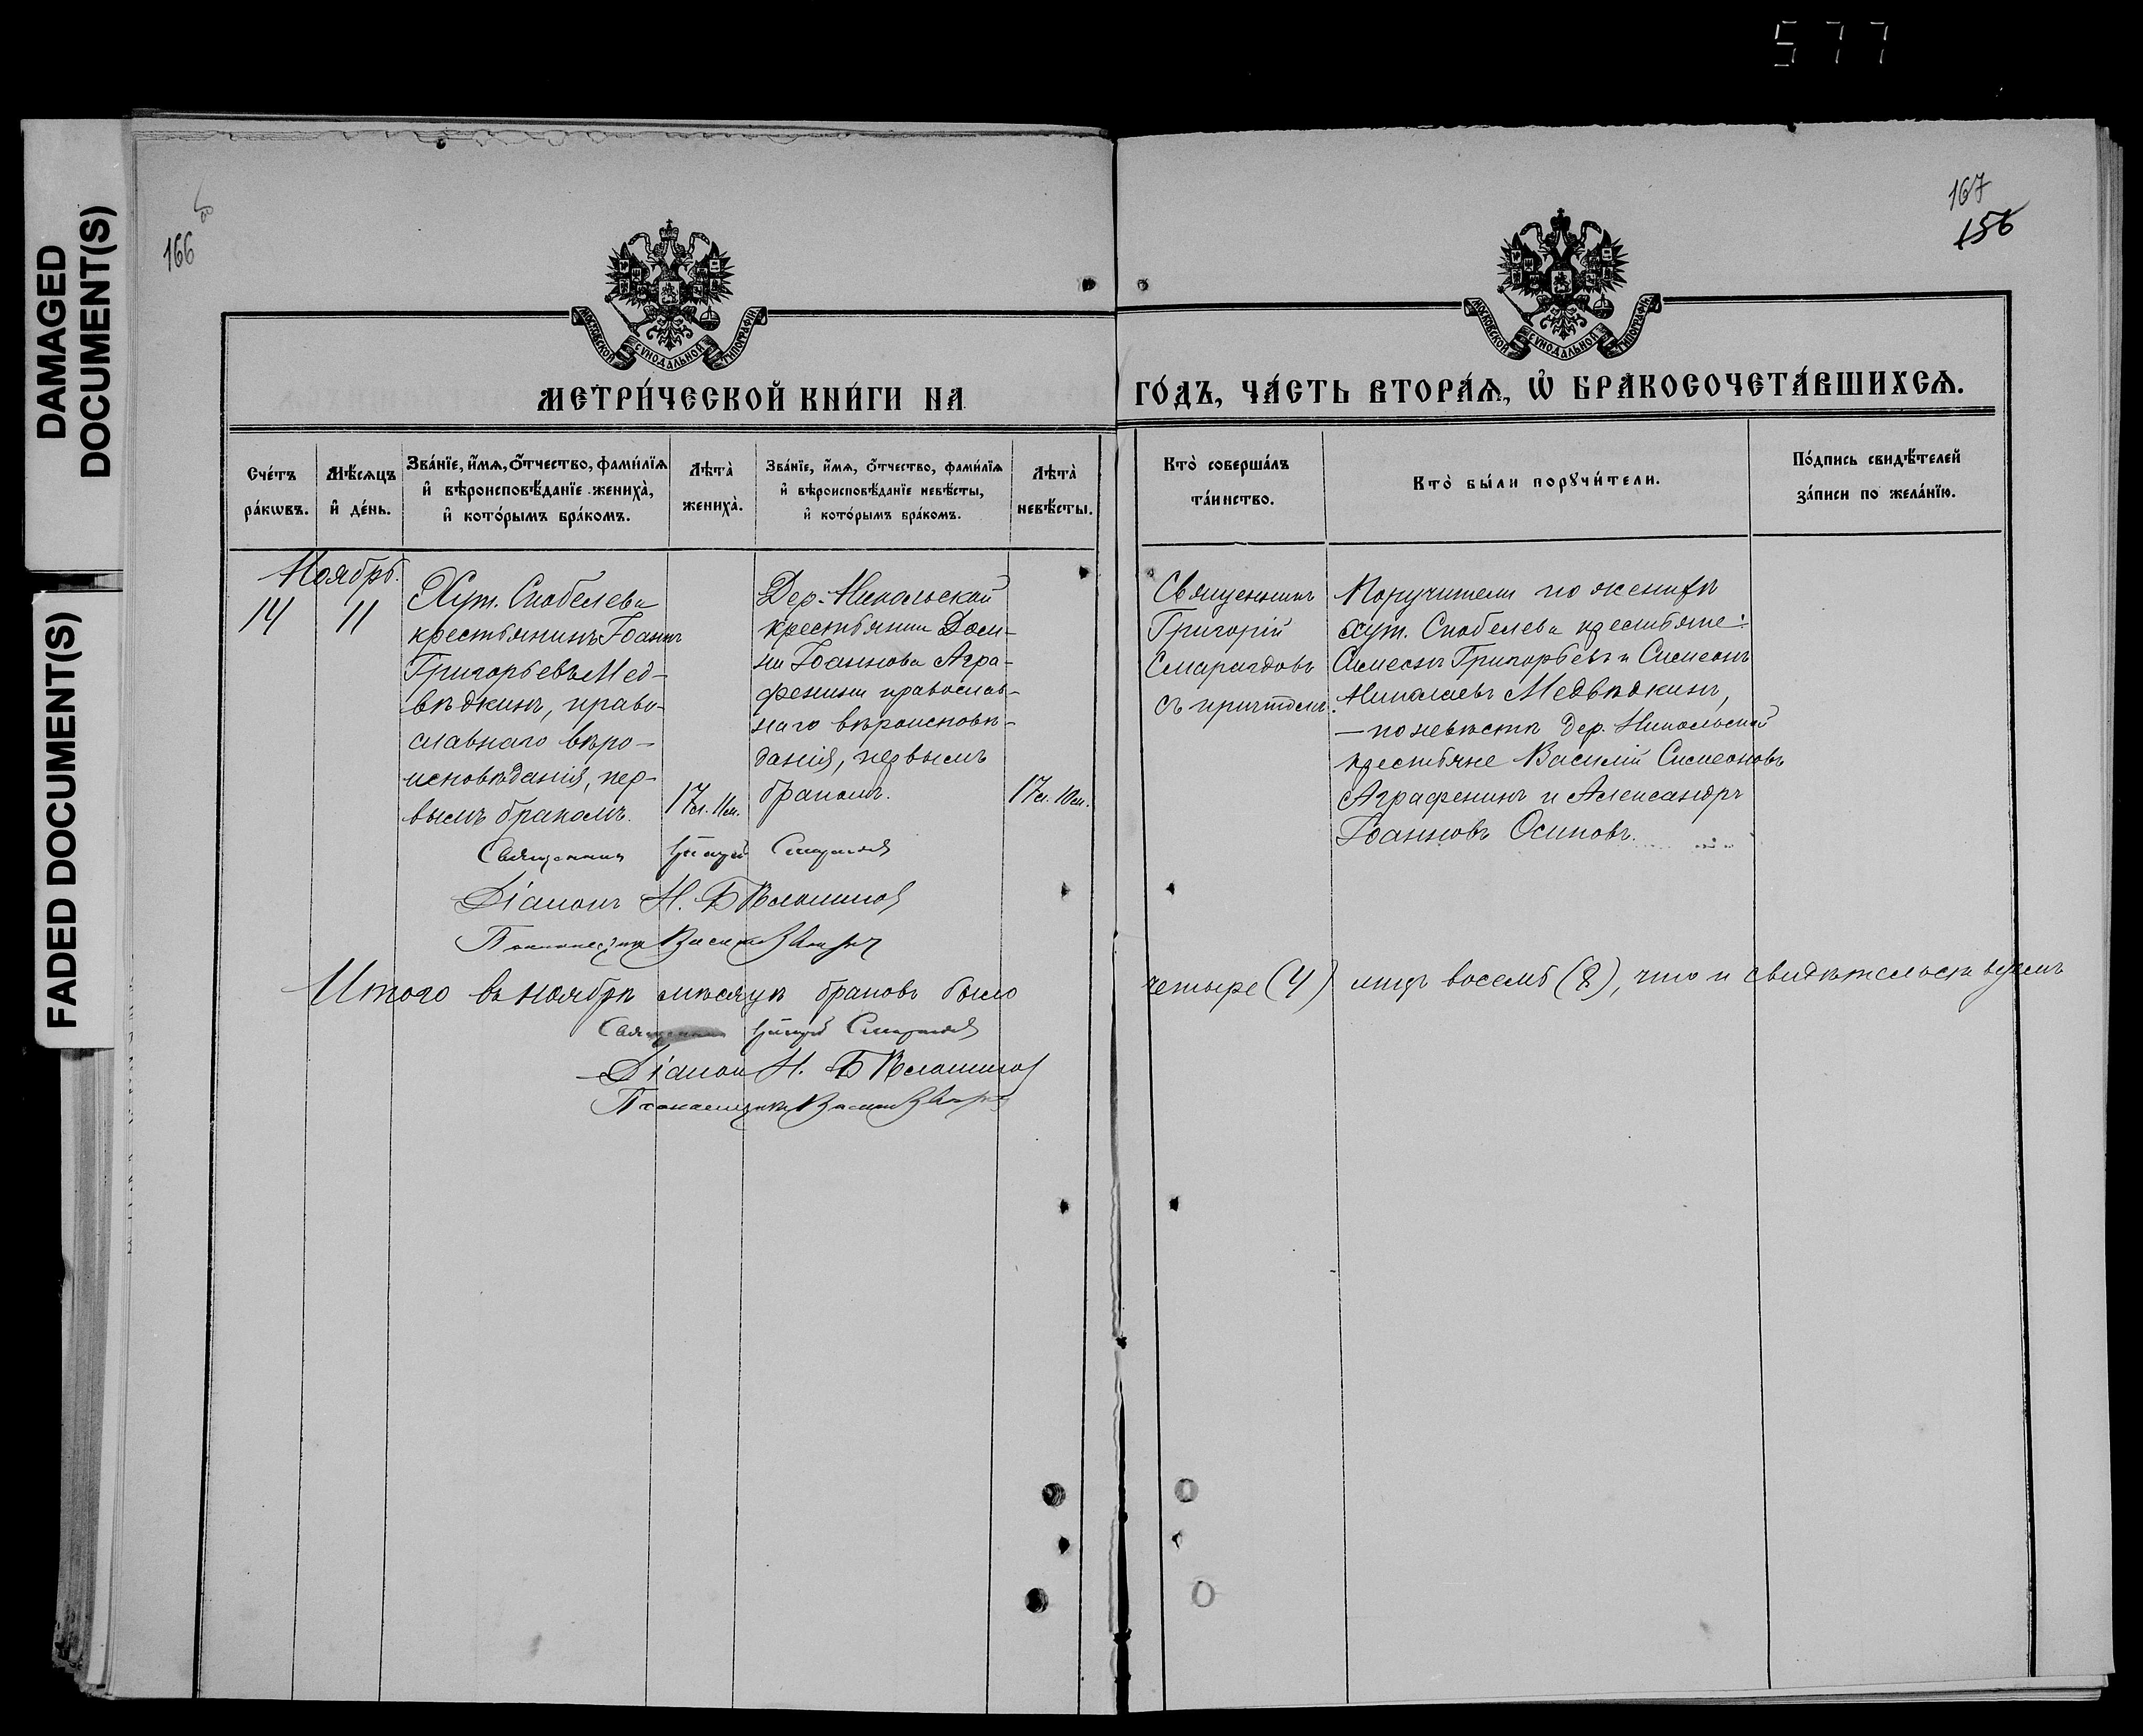 577
DAMAGED
DOCUMENT(S)
FADED DOCUMENT(S)
166
167
156
МОСКОВСКОЙ СУНОДАЛЬНОЙ ТИПОГРАФІИ
МОСКОВСКОЙ СУНОДАЛЬНОЙ ТИПОГРАФІИ
МЕТРИ́ЧЕСКОЙ КНИ́ГИ НА
ГО́ДЪ, ЧА́СТЬ ВТОРА́Ѧ, Ѡ҆ БРАКОСОЧЕТА́ВШИХСѦ.
Сче́тъ
ра́кѡвъ.
Мѣ́сяцъ
и҆ де́нь.
Зва́нїе, и҆́мѧ, ѻ҆́тчество, фами́лїѧ
и҆ вѣроисповѣ́данїе жениха̀,
и҆ кото́рымъ бра́комъ.
Лѣта̀
жениха̀.
Зва́нїе, и҆́мѧ, ѻ҆́тчество, фами́лїѧ
и҆ вѣроисповѣ́данїе невѣ́сты,
и҆ кото́рымъ бра́комъ.
Лѣта̀
невѣ́сты.
Кто̀ соверша́лъ
та́инство.
Кто̀ бы́ли порꙋчи́тели.
По́дпись свидѣ́телей
за́писи по жела́нїю.
Ноябрь.
14
11
Хут. Скобелева
крестьянинъ Іоаннъ
Григорьевъ Мед-
вѣдкинъ, право-
славнаго вѣро-
исповѣданія, пер-
вымъ бракомъ.
17 л. 11 м.
Дер. Никольской
крестьянка Дом-
на Іоаннова Агра-
фенина православ-
наго вѣроисповѣ-
данія, первымъ
бракомъ.
17 л. 10 м.
Священникъ
Григорій
Смарагдовъ
съ причтомъ.
Поручители по женихѣ
хут. Скобелева крестьяне:
Симеонъ Григорьевъ и Симеонъ
Николаевъ Медвѣдкинъ,
— по невѣстѣ дер. Никольской
крестьяне Василій Симеоновъ
Аграфенинъ и Александръ
Іоанновъ Осиповъ.
Священникъ Григорій Смарагдовъ
Діаконъ Н. Б
Псаломщикъ Василій
Итого въ ноябрѣ мѣсяцѣ браковъ было
четыре (4) лицъ восемь (8), что и свидѣтельствуемъ
Священникъ Григорій Смарагдовъ
Діаконъ Н. Б
Псаломщикъ Василій